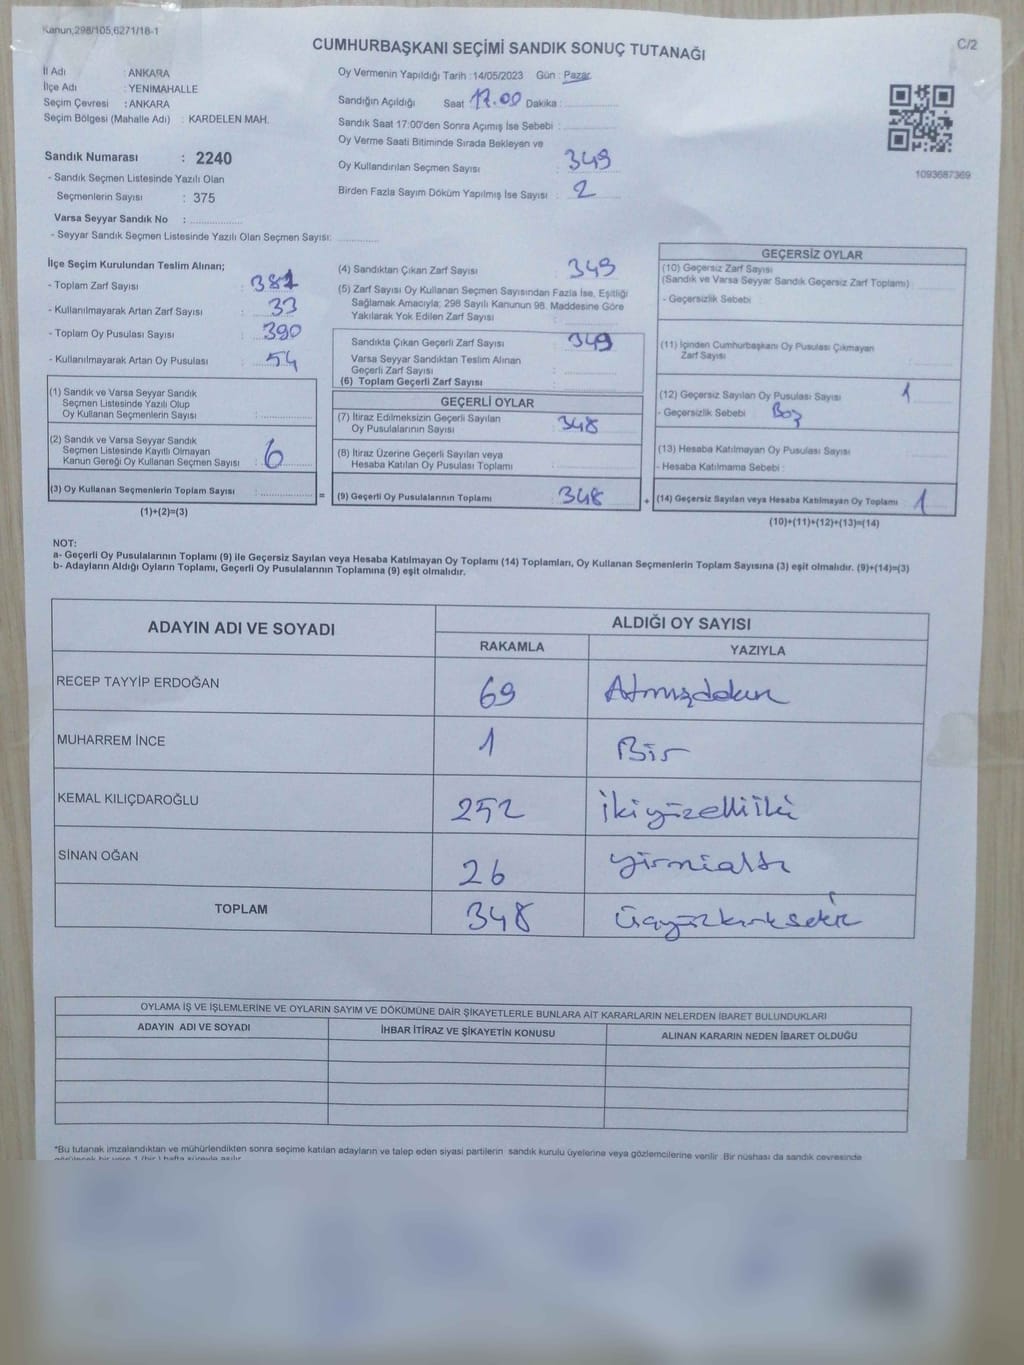 Kanun,298/105,6271/18-1
C/2
CUMHURBAŞKANI SEÇİMİ SANDIK SONUÇ TUTANAĞI
İl Adı : ANKARA
İlçe Adı : YENİMAHALLE
Seçim Çevresi : ANKARA
Seçim Bölgesi (Mahalle Adı) : KARDELEN MAH.
Sandık Numarası : 2240
- Sandık Seçmen Listesinde Yazılı Olan
Seçmenlerin Sayısı : 375
Varsa Seyyar Sandık No :
- Seyyar Sandık Seçmen Listesinde Yazılı Olan Seçmen Sayısı:
Oy Vermenin Yapıldığı Tarih :14/05/2023 Gün : Pazar
Sandığın Açıldığı Saat 17.00 Dakika :
Sandık Saat 17:00'den Sonra Açımış İse Sebebi :
Oy Verme Saati Bitiminde Sırada Bekleyen ve
Oy Kullandırılan Seçmen Sayısı : 349
Birden Fazla Sayım Döküm Yapılmış İse Sayısı : 2
1093687369
İlçe Seçim Kurulundan Teslim Alınan;
- Toplam Zarf Sayısı : 382
- Kullanılmayarak Artan Zarf Sayısı : 33
- Toplam Oy Pusulası Sayısı : 390
- Kullanılmayarak Artan Oy Pusulası : 54
(1) Sandık ve Varsa Seyyar Sandık
Seçmen Listesinde Yazılı Olup
Oy Kullanan Seçmenlerin Sayısı :
(2) Sandık ve Varsa Seyyar Sandık
Seçmen Listesinde Kayıtlı Olmayan
Kanun Gereği Oy Kullanan Seçmen Sayısı : 6
(3) Oy Kullanan Seçmenlerin Toplam Sayısı :
(1)+(2)=(3)
=
(4) Sandıktan Çıkan Zarf Sayısı : 349
(5) Zarf Sayısı Oy Kullanan Seçmen Sayısından Fazla İse, Eşitliği
Sağlamak Amacıyla; 298 Sayılı Kanunun 98. Maddesine Göre
Yakılarak Yok Edilen Zarf Sayısı :
Sandıkta Çıkan Geçerli Zarf Sayısı : 349
Varsa Seyyar Sandıktan Teslim Alınan
Geçerli Zarf Sayısı :
(6) Toplam Geçerli Zarf Sayısı :
GEÇERLİ OYLAR
(7) İtiraz Edilmeksizin Geçerli Sayılan
Oy Pusulalarının Sayısı : 348
(8) İtiraz Üzerine Geçerli Sayılan veya
Hesaba Katılan Oy Pusulası Toplamı :
(9) Geçerli Oy Pusulalarının Toplamı : 348
+
GEÇERSİZ OYLAR
(10) Geçersiz Zarf Sayısı
(Sandık ve Varsa Seyyar Sandık Geçersiz Zarf Toplamı) :
- Geçersizlik Sebebi :
(11) İçinden Cumhurbaşkanı Oy Pusulası Çıkmayan
Zarf Sayısı :
(12) Geçersiz Sayılan Oy Pusulası Sayısı : 1
- Geçersizlik Sebebi : Boş
(13) Hesaba Katılmayan Oy Pusulası Sayısı :
- Hesaba Katılmama Sebebi :
(14) Geçersiz Sayılan veya Hesaba Katılmayan Oy Toplamı : 1
(10)+(11)+(12)+(13)=(14)
NOT:
a- Geçerli Oy Pusulalarının Toplamı (9) ile Geçersiz Sayılan veya Hesaba Katılmayan Oy Toplamı (14) Toplamları, Oy Kullanan Seçmenlerin Toplam Sayısına (3) eşit olmalıdır. (9)+(14)=(3)
b- Adayların Aldığı Oyların Toplamı, Geçerli Oy Pusulalarının Toplamına (9) eşit olmalıdır.
ADAYIN ADI VE SOYADI
ALDIĞI OY SAYISI
RAKAMLA YAZIYLA
RECEP TAYYİP ERDOĞAN 69 Atmışdokuz
MUHARREM İNCE 1 Bir
KEMAL KILIÇDAROĞLU 252 İkiyüzelliiki
SİNAN OĞAN 26 yirmialtı
TOPLAM 348 Üçyüzkırksekiz
OYLAMA İŞ VE İŞLEMLERİNE VE OYLARIN SAYIM VE DÖKÜMÜNE DAİR ŞİKAYETLERLE BUNLARA AİT KARARLARIN NELERDEN İBARET BULUNDUKLARI
ADAYIN ADI VE SOYADI İHBAR İTİRAZ VE ŞİKAYETİN KONUSU ALINAN KARARIN NEDEN İBARET OLDUĞU
*Bu tutanak imzalandıktan ve mühürlendikten sonra seçime katılan adayların ve talep eden siyasi partilerin sandık kurulu üyelerine veya gözlemcilerine verilir. Bir nüshası da sandık çevresinde